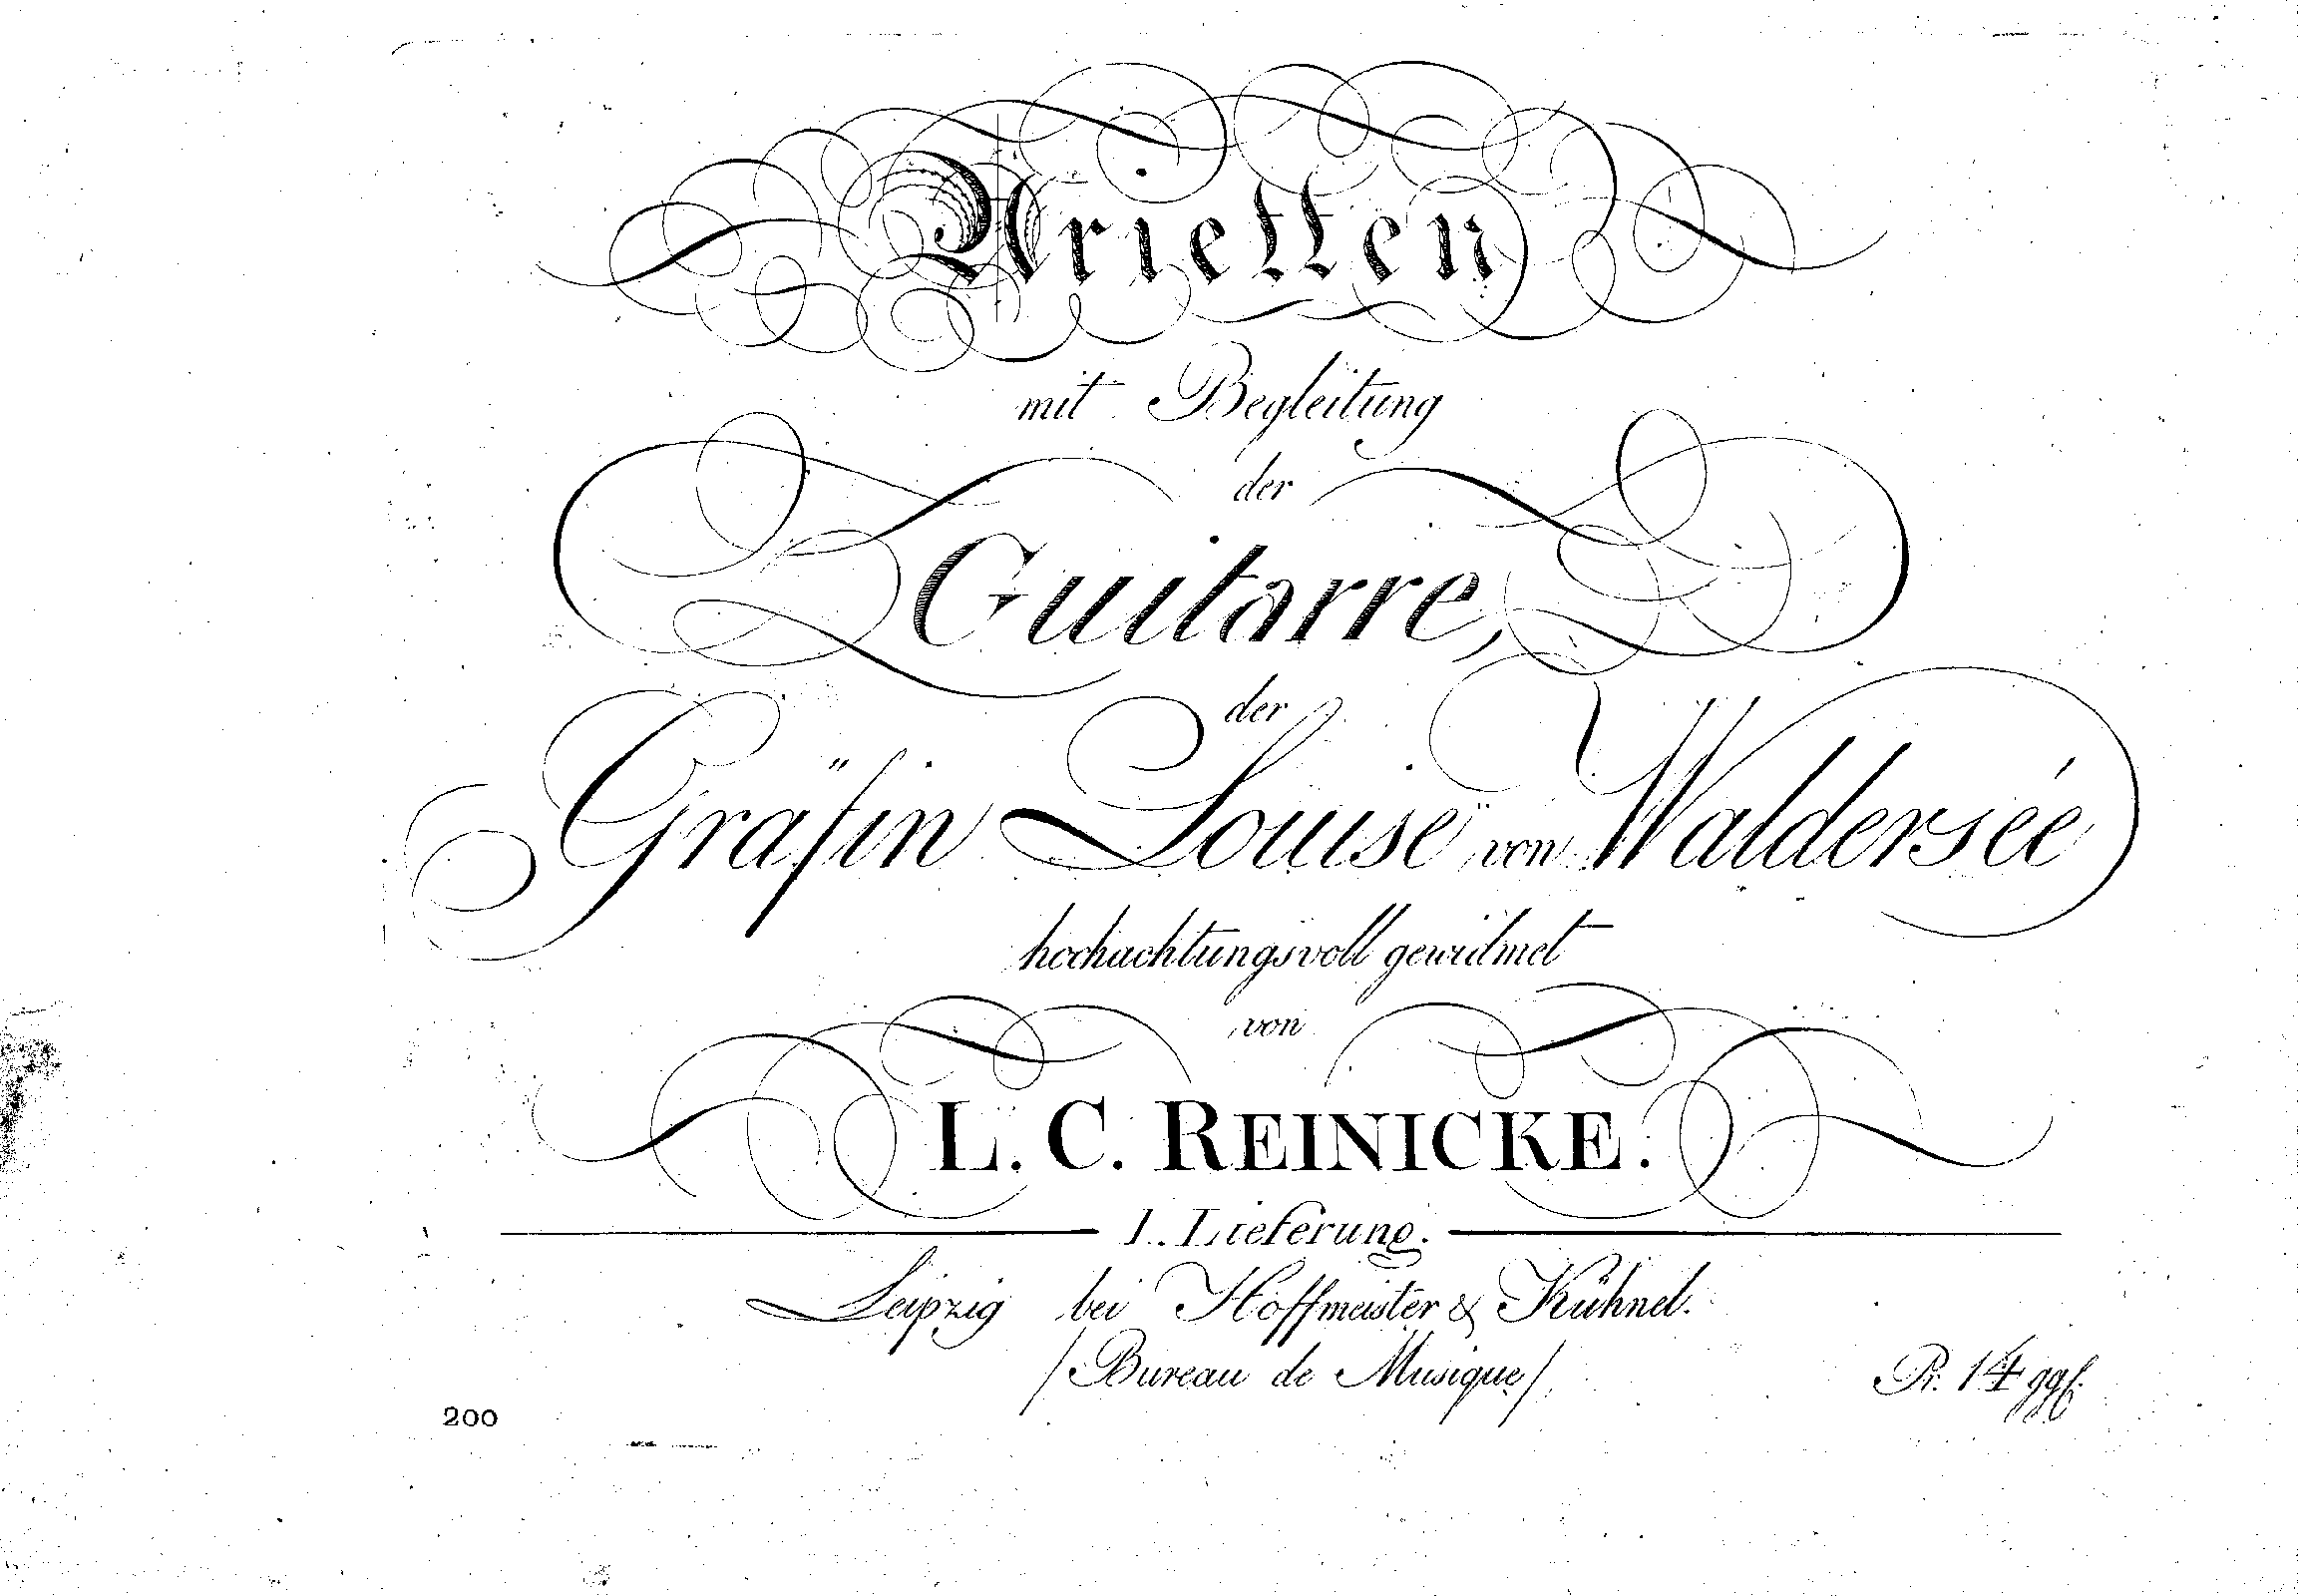 Arietten
mit Begleitung
der
Guitarre,
der
Gräfin Louise von Walderseé
hochachtungsvoll gewidmet
von
L. C. REINICKE.
1. Lieferung.
Leipzig bei Hoffmeister & Kühnel.
/Bureau de Musique/
Pr. 14 ggf.
200